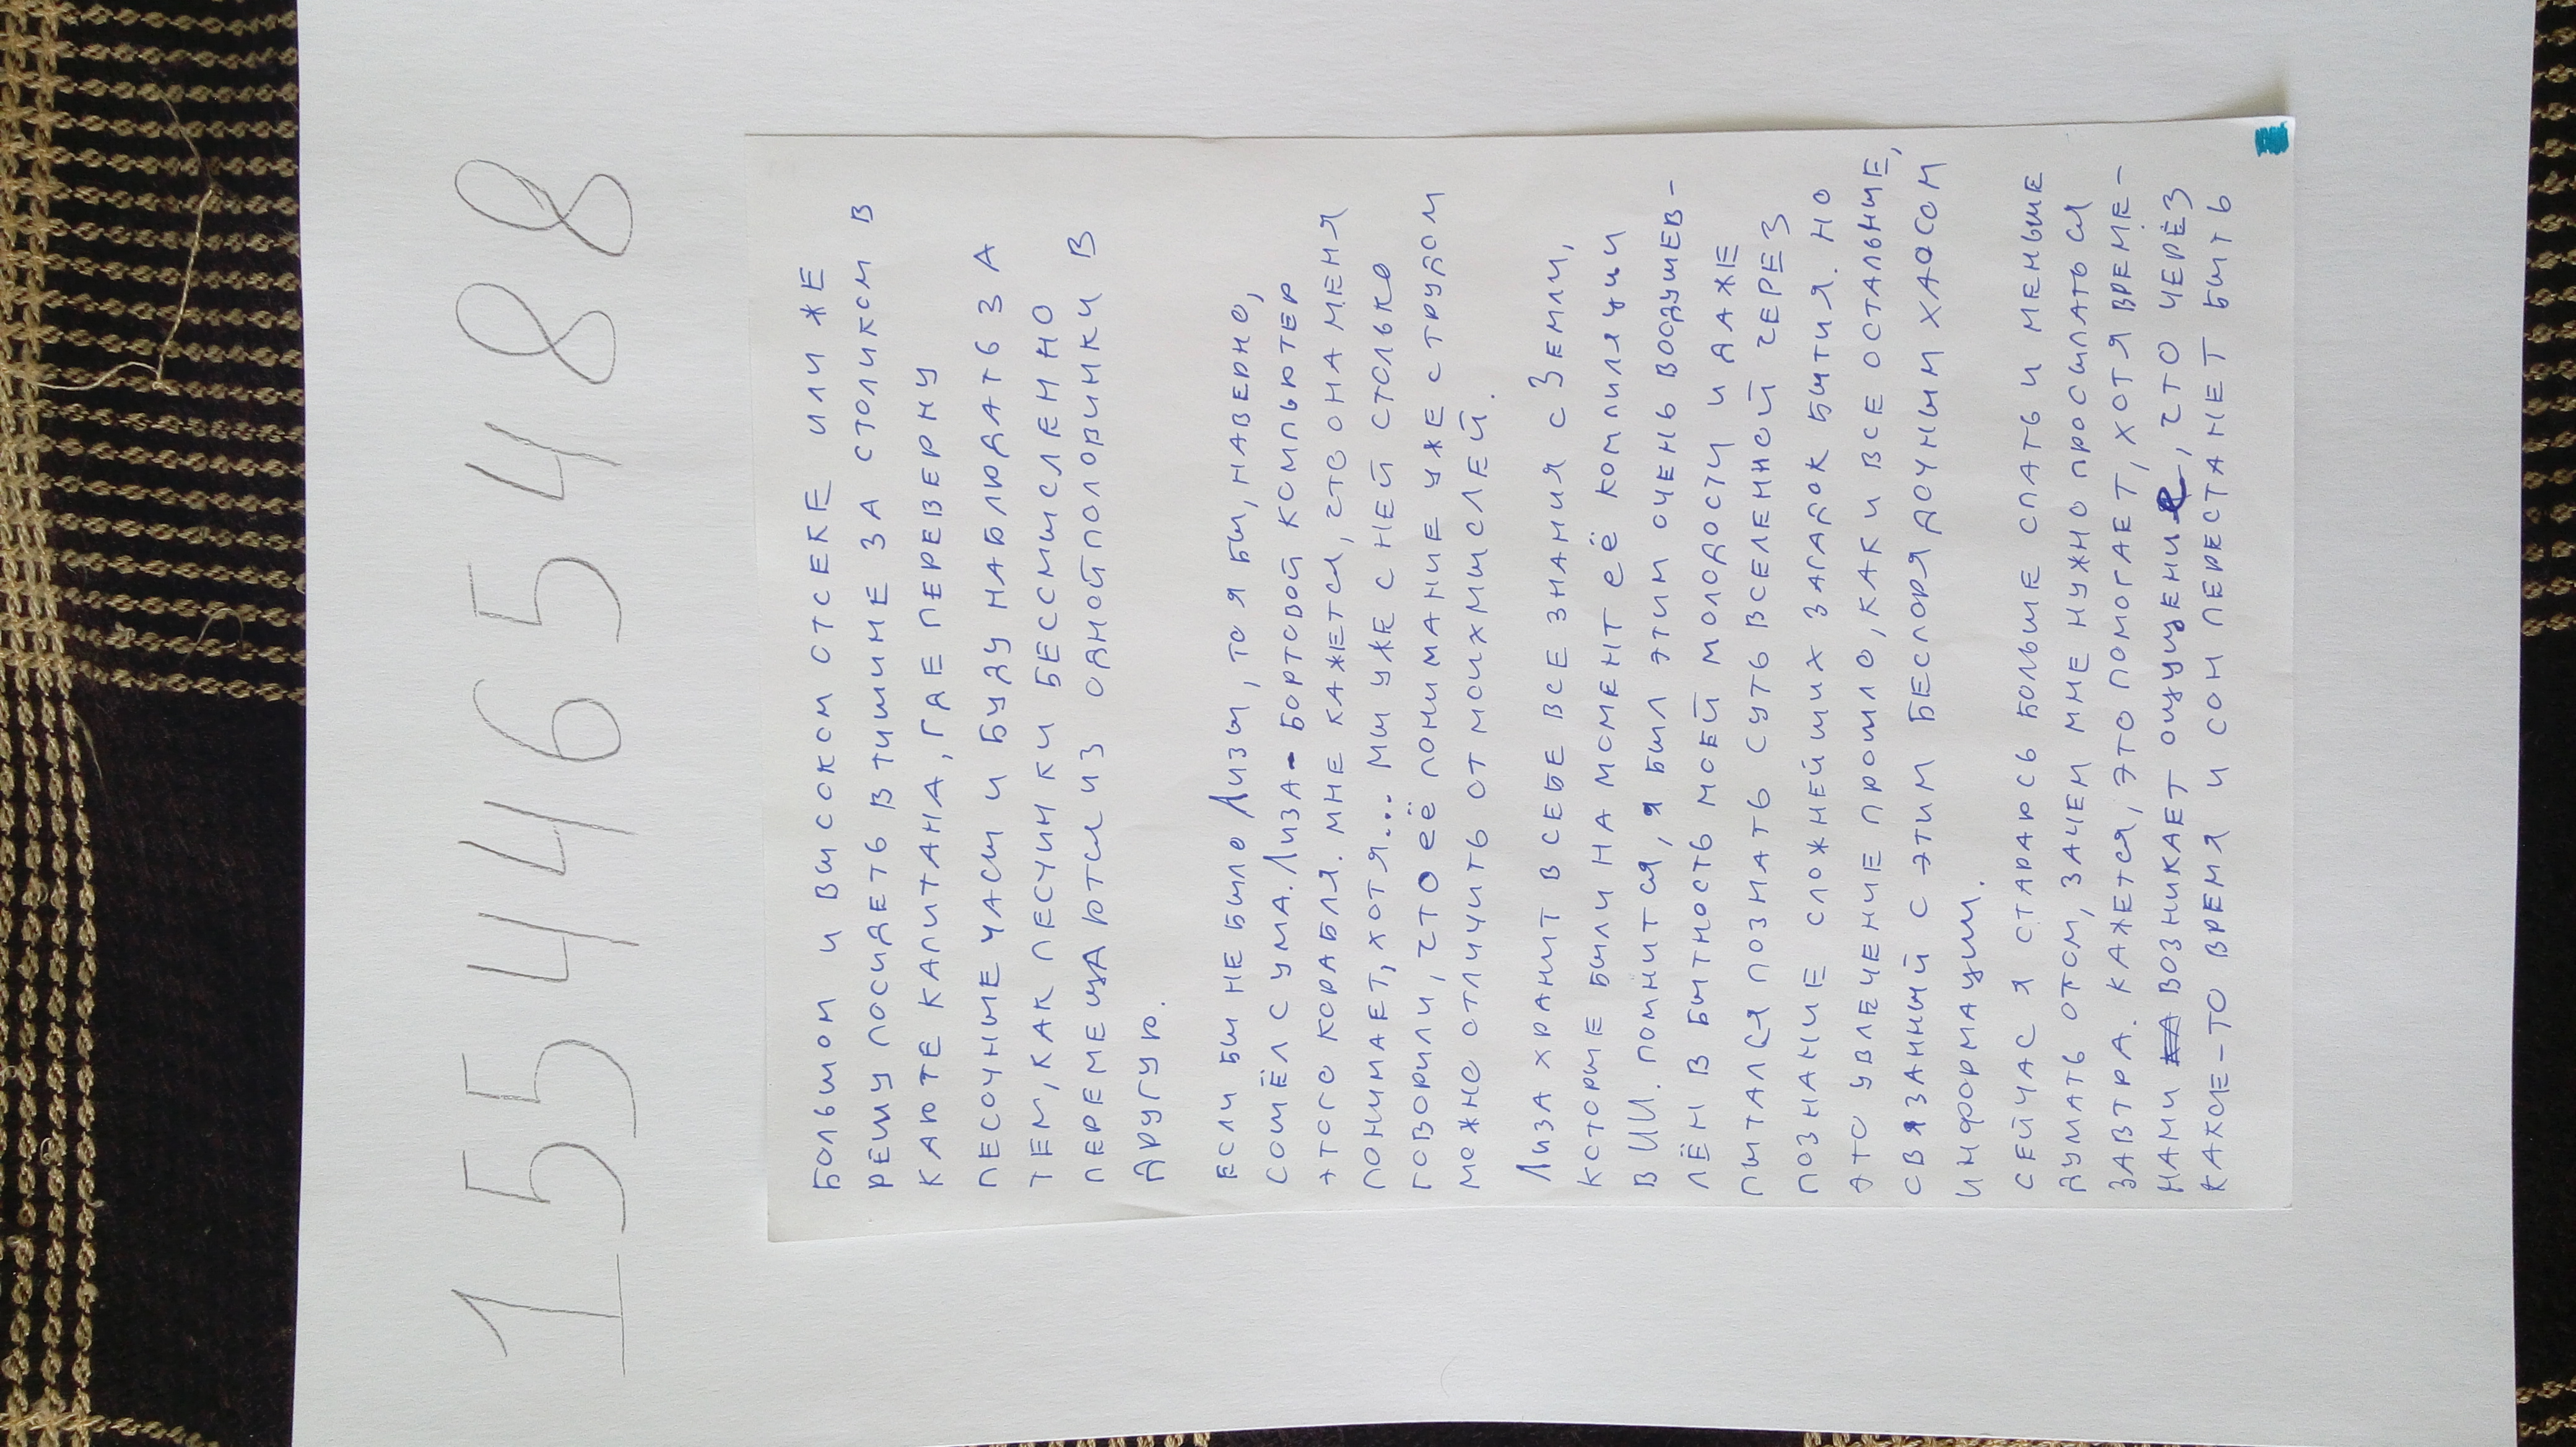 155465488
большом и высоком отсеке или же
решу посидеть в тишине за столиком в
каюте капитана, где переверну
песочные часы и буду наблюдать за
тем, как песчинки бессмысленно
перемещаются из одной половинки в
другую.
если бы не было Лизы, то я бы, наверно,
сошёл с ума. Лиза - бортовой компьютер
этого корабля. мне кажется, что она меня
понимает, хотя... мы уже с ней столько
говорили, что её понимание уже с трудом
можно отличить от моих мыслей.
Лиза хранит в себе все знания с Земли,
которые были на момент её компиляции
в ИИ. помнится, я был этим очень воодушев-
лён в бытность моей молодости и даже
пытался познать суть вселенной через
познание сложнейших загадок бытия. но
это увлечение прошло, как и все остальные,
связанный с этим беспорядочным хаосом
информации.
сейчас я стараюсь больше спать и меньше
думать о том, зачем мне нужно просыпаться
завтра. кажется, это помогает, хотя време-
нами возникает ощущение, что через
какое-то время и сон перестанет быть